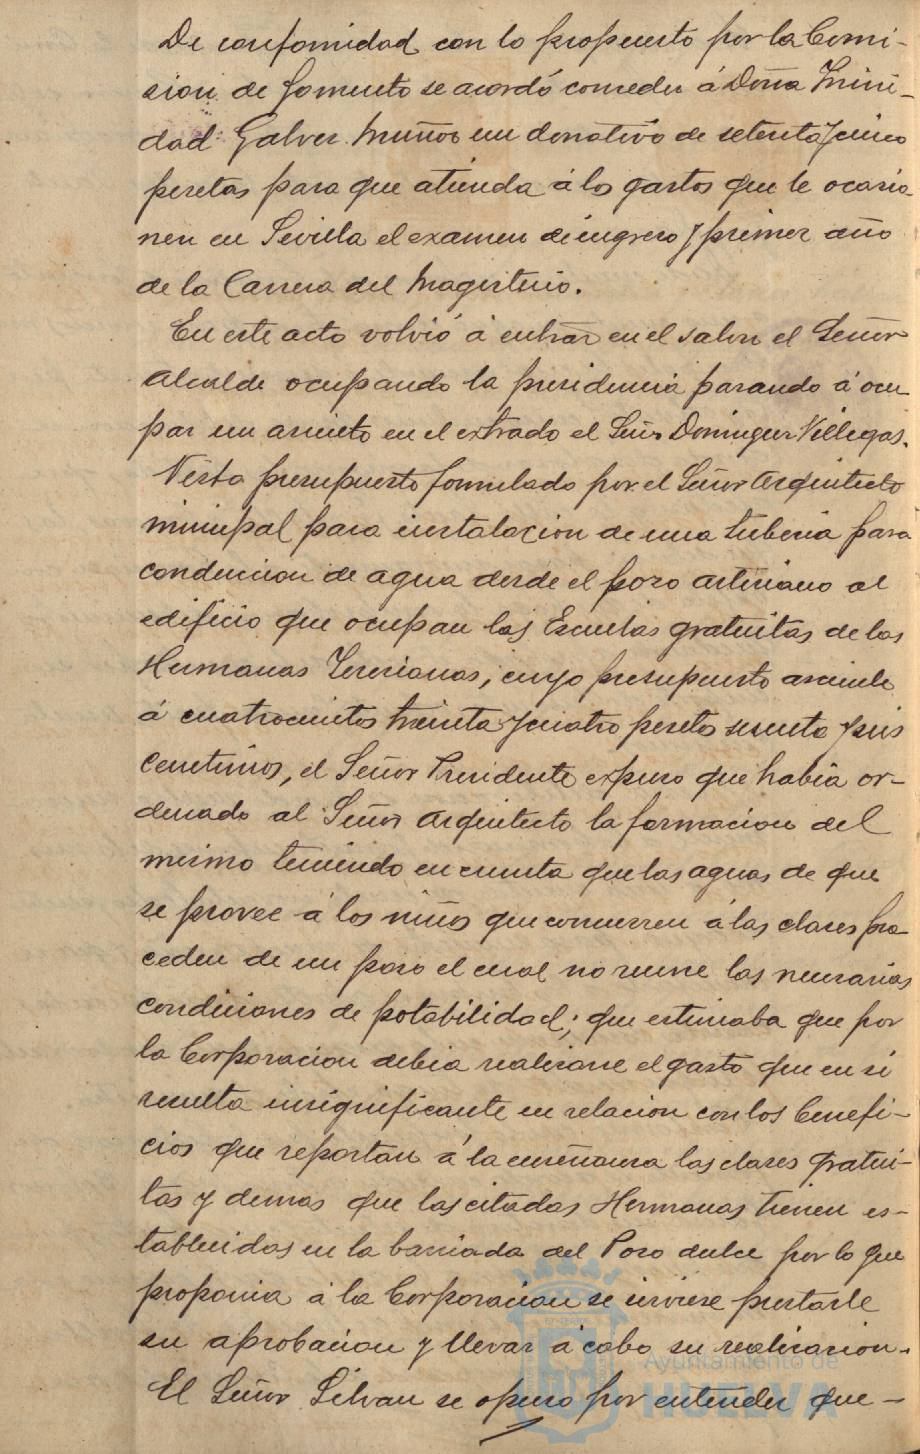 De conformidad con lo propuesto por la Comi-
sion de fomento se acordó conceder á Doña Trini-
dad Galvez Muñoz un donativo de setenta y cinco
pesetas para que atienda á los gastos que le ocasio
nen en Sevilla el examen de ingreso y primer año
de la Carrera del Magisterio.
En este acto volvió á entrar en el salon el Señor
Alcalde ocupando la presidencia pasando á ocu
par un asiento en el estrado el Señor Dominguez Villegas.
Visto presupuesto formulado por el Señor Arquitecto
municipal para instalacion de una tuberia para
conduccion de agua desde el pozo artesiano al
edificio que ocupan las Escuelas gratuitas de las
Hermanas Teresianas, cuyo presupuesto asciende
á cuatrocientos treinta y cuatro pesetas sesenta y seis
centimos, el Señor Presidente expuso que habia or-
denado al Señor Arquitecto la formacion del
mismo teniendo en cuenta que las aguas de que
se provee á los niños que concurren á las clases pro
ceden de un pozo el cual no reune las necesarias
condiciones de potabilidad; que estimaba que por
la Corporacion debia realizarse el gasto que en si
resulta insignificante en relacion con los benefi-
cios que reportan á la enseñanza las clases gratui-
tas y demas que las citadas Hermanas tienen es-
tablecidas en la barriada del Pozo dulce por lo que
proponia á la Corporacion se sirviese prestarle
su aprobacion y llevar á cabo su realizacion.
El Señor Silvan se opuso por entender que-
Ayuntamiento de
HUELVA